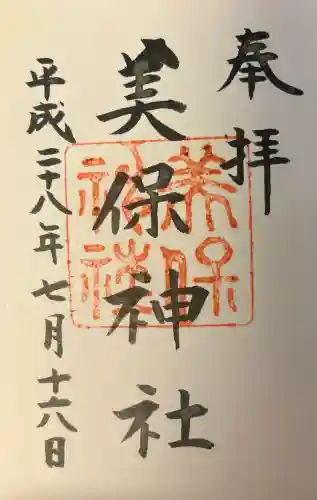 奉拝
美保神社
美保
神社
平成二十八年七月十六日